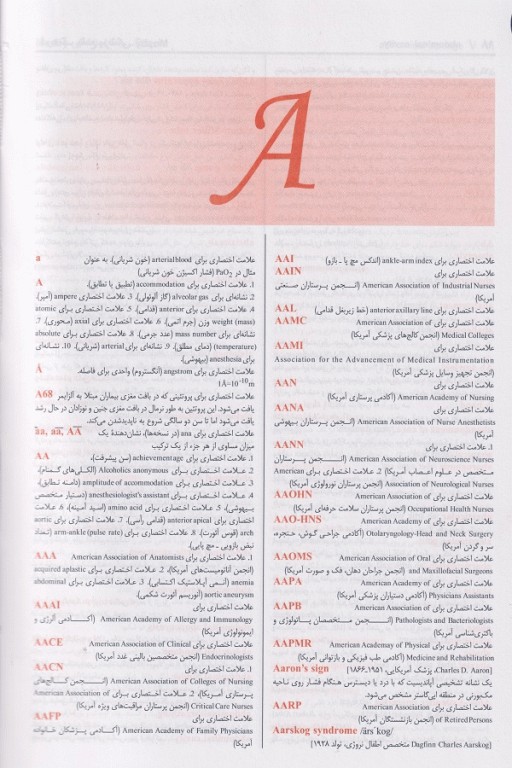 A
a
علامت اختصاری برای arterial blood (خون شریانی)، به عنوان
مثال در PaO2 (فشار اکسیژن خون شریانی)
A
1. علامت اختصاری برای accommodation (تطبیق یا تطابق).
2. نشانه‌ای برای alveolar gas (گاز آلوئولی). 3. علامت اختصاری ampere (آمپر).
4. علامت اختصاری برای anterior (قدامی). 5. علامت اختصاری برای atomic
weight (mass) وزن (جرم اتمی). 6. علامت اختصاری برای axial (محوری). 7.
نشانه‌ای برای mass number (عدد جرمی). 8. علامت اختصاری برای absolute
(temperature) (دمای مطلق). 9. نشانه‌ای برای arterial (شریانی). 10. نشانه‌ای
برای anesthesia (بیهوشی).
Å
علامت اختصاری برای angstrom (آنگستروم) واحدی برای فاصله.
1Å=10⁻¹⁰m
A68 علامت اختصاری برای پروتئینی که در بافت مغزی بیماران مبتلا به آلزایمر
یافت می‌شود. این پروتئین به طور نرمال در بافت مغزی جنین و نوزادان در حال رشد
یافت می‌شود اما تا سن دو سالگی شروع به ناپدیدشدن می‌کند.
aa, a̅a̅, A̅A̅ علامت اختصاری برای ana (در نسخه‌ها)، نشان‌دهندهٔ یک
میزان مساوی از هر جزء از یک ترکیب
AA
1. علامت اختصاری برای achievement age (سن پیشرفت)،
2. علامت اختصاری برای Alcoholics anonymous (الکلی‌های گمنام)،
3. علامت اختصاری برای amplitude of accommodation (دامنه تطابق)،
4. علامت اختصاری برای anesthesiologist's assistant (دستیار متخصص
بیهوشی)، 5. علامت اختصاری برای amino acid (اسید آمینه)، 6. علامت
اختصاری برای anterior apical (قدامی رأسی). 7. علامت اختصاری برای aortic
arch (قوس آئورت)، 8. علامت اختصاری برای arm-ankle (pulse rate) (تعداد
نبض بازویی ـ مچ پایی).
AAA
1. علامت اختصاری برای American Association of Anatomists
(انجمن آناتومیست‌های آمریکا)، 2. علامت اختصاری برای acquired aplastic
anemia (آنمی آپلاستیک اکتسابی). 3. علامت اختصاری برای abdominal
aortic aneurysm (آنوریسم آئورت شکمی).
AAAI
علامت اختصاری برای
American Academy of Allergy and Immunology (آکادمی آلرژی و
ایمونولوژی آمریکا)
AACE
علامت اختصاری برای American Association of Clinical
Endocrinologists (انجمن متخصصین بالینی غدد آمریکا)
AACN
1. علامت اختصاری برای
American Association of Colleges of Nursing (انجمن کالج‌های
پرستاری آمریکا)، 2. علامت اختصاری برای American Association of
Critical Care Nurses (انجمن پرستاران مراقبت‌های ویژه آمریکا)
AAFP
علامت اختصاری برای
American Academy of Family Physicians (آکادمی پزشکان خانواده
آمریکا)
AAI
علامت اختصاری برای ankle-arm index (اندکس مچ پا ـ بازو)
AAIN
علامت اختصاری برای
American Association of Industrial Nurses (انجمن پرستاران صنعتی
آمریکا)
AAL
علامت اختصاری برای anterior axillary line (خط زیربغل قدامی)
AAMC
علامت اختصاری برای American Association of
Medical Colleges (انجمن کالج‌های پزشکی آمریکا)
AAMI
علامت اختصاری برای
Association for the Advancement of Medical Instrumentation
(انجمن تجهیز وسایل پزشکی آمریکا)
AAN
علامت اختصاری برای
American Academy of Nursing (آکادمی پرستاری آمریکا)
AANA
علامت اختصاری برای
American Association of Nurse Anesthetists (انجمن پرستاران بیهوشی
آمریکا)
AANN
1. علامت اختصاری برای
American Association of Neuroscience Nurses (انجمن پرستاران
متخصص در علوم اعصاب آمریکا) 2. علامت اختصاری برای American
Association of Neurological Nurses (انجمن پرستاران نورولوژی آمریکا)
AAOHN
علامت اختصاری برای American Association of
Occupational Health Nurses (انجمن پرستاران سلامت حرفه‌ای آمریکا)
AAO-HNS
علامت اختصاری برای American Academy of
Otolaryngology-Head and Neck Surgery (آکادمی جراحی گوش، حنجره،
سر و گردن آمریکا)
AAOMS
علامت اختصاری برای American Association of Oral
and Maxillofacial Surgeons (انجمن جراحان دهان، فک و صورت آمریکا)
AAPA
علامت اختصاری برای American Academy of
Physicians Assistants (آکادمی دستیاران پزشکی آمریکا)
AAPB
علامت اختصاری برای American Association of
Pathologists and Bacteriologists (انجمن متخصصان پاتولوژی و
باکتری‌شناسی آمریکا)
AAPMR
علامت اختصاری برای American Academay of Physical
Medicine and Rehabilitation (آکادمی طب فیزیکی و بازتوانی آمریکا)
Aaron's sign
[Charles D. Aaron، پزشک آمریکایی، ۱۹۵۱-۱۸۶۶]
یک نشانه تشخیصی آپاندیسیت که با درد یا دیسترس هنگام فشار روی ناحیه
مک‌بورنی در منطقه اپی‌گاستر مشخص می‌شود.
AARP
علامت اختصاری برای American Association
of Retired Persons (انجمن بازنشستگان آمریکا)
Aarskog syndrome /ärs′kog/
[Dagfinn Charles Aarskog متخصص اطفال نروژی، تولد ۱۹۲۸]